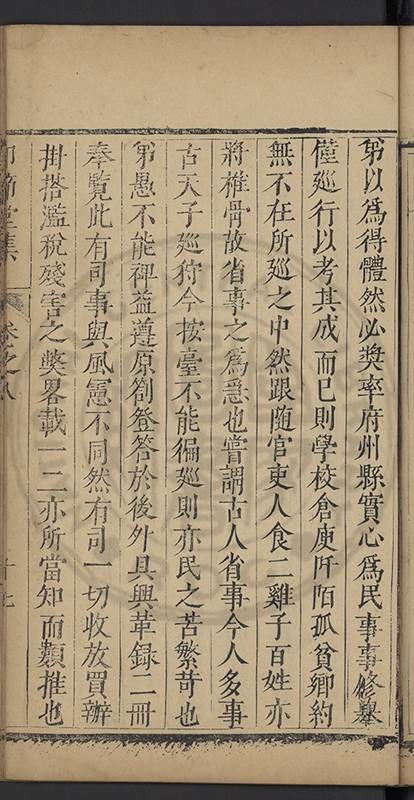 第以為得體然必獎率府州縣實心為民事事修舉
僅廵行以考其成而已則學校倉庾阡陌孤貧鄉約
無不在所廵之中然跟隨官吏人食二雞子百姓亦
將椎骨故省事之為急也嘗謂古人省事今人多事
古天子廵狩今按臺不能徧廵則亦民之苦繁苛也
第愚不能裨益遵原劄登答於後外具興革録二冊
奉覽此有司事與風憲不同然有司一切收放買辦
掛搭濫稅殘害之獘畧載一二亦所當知而類推也
卷之八
十七